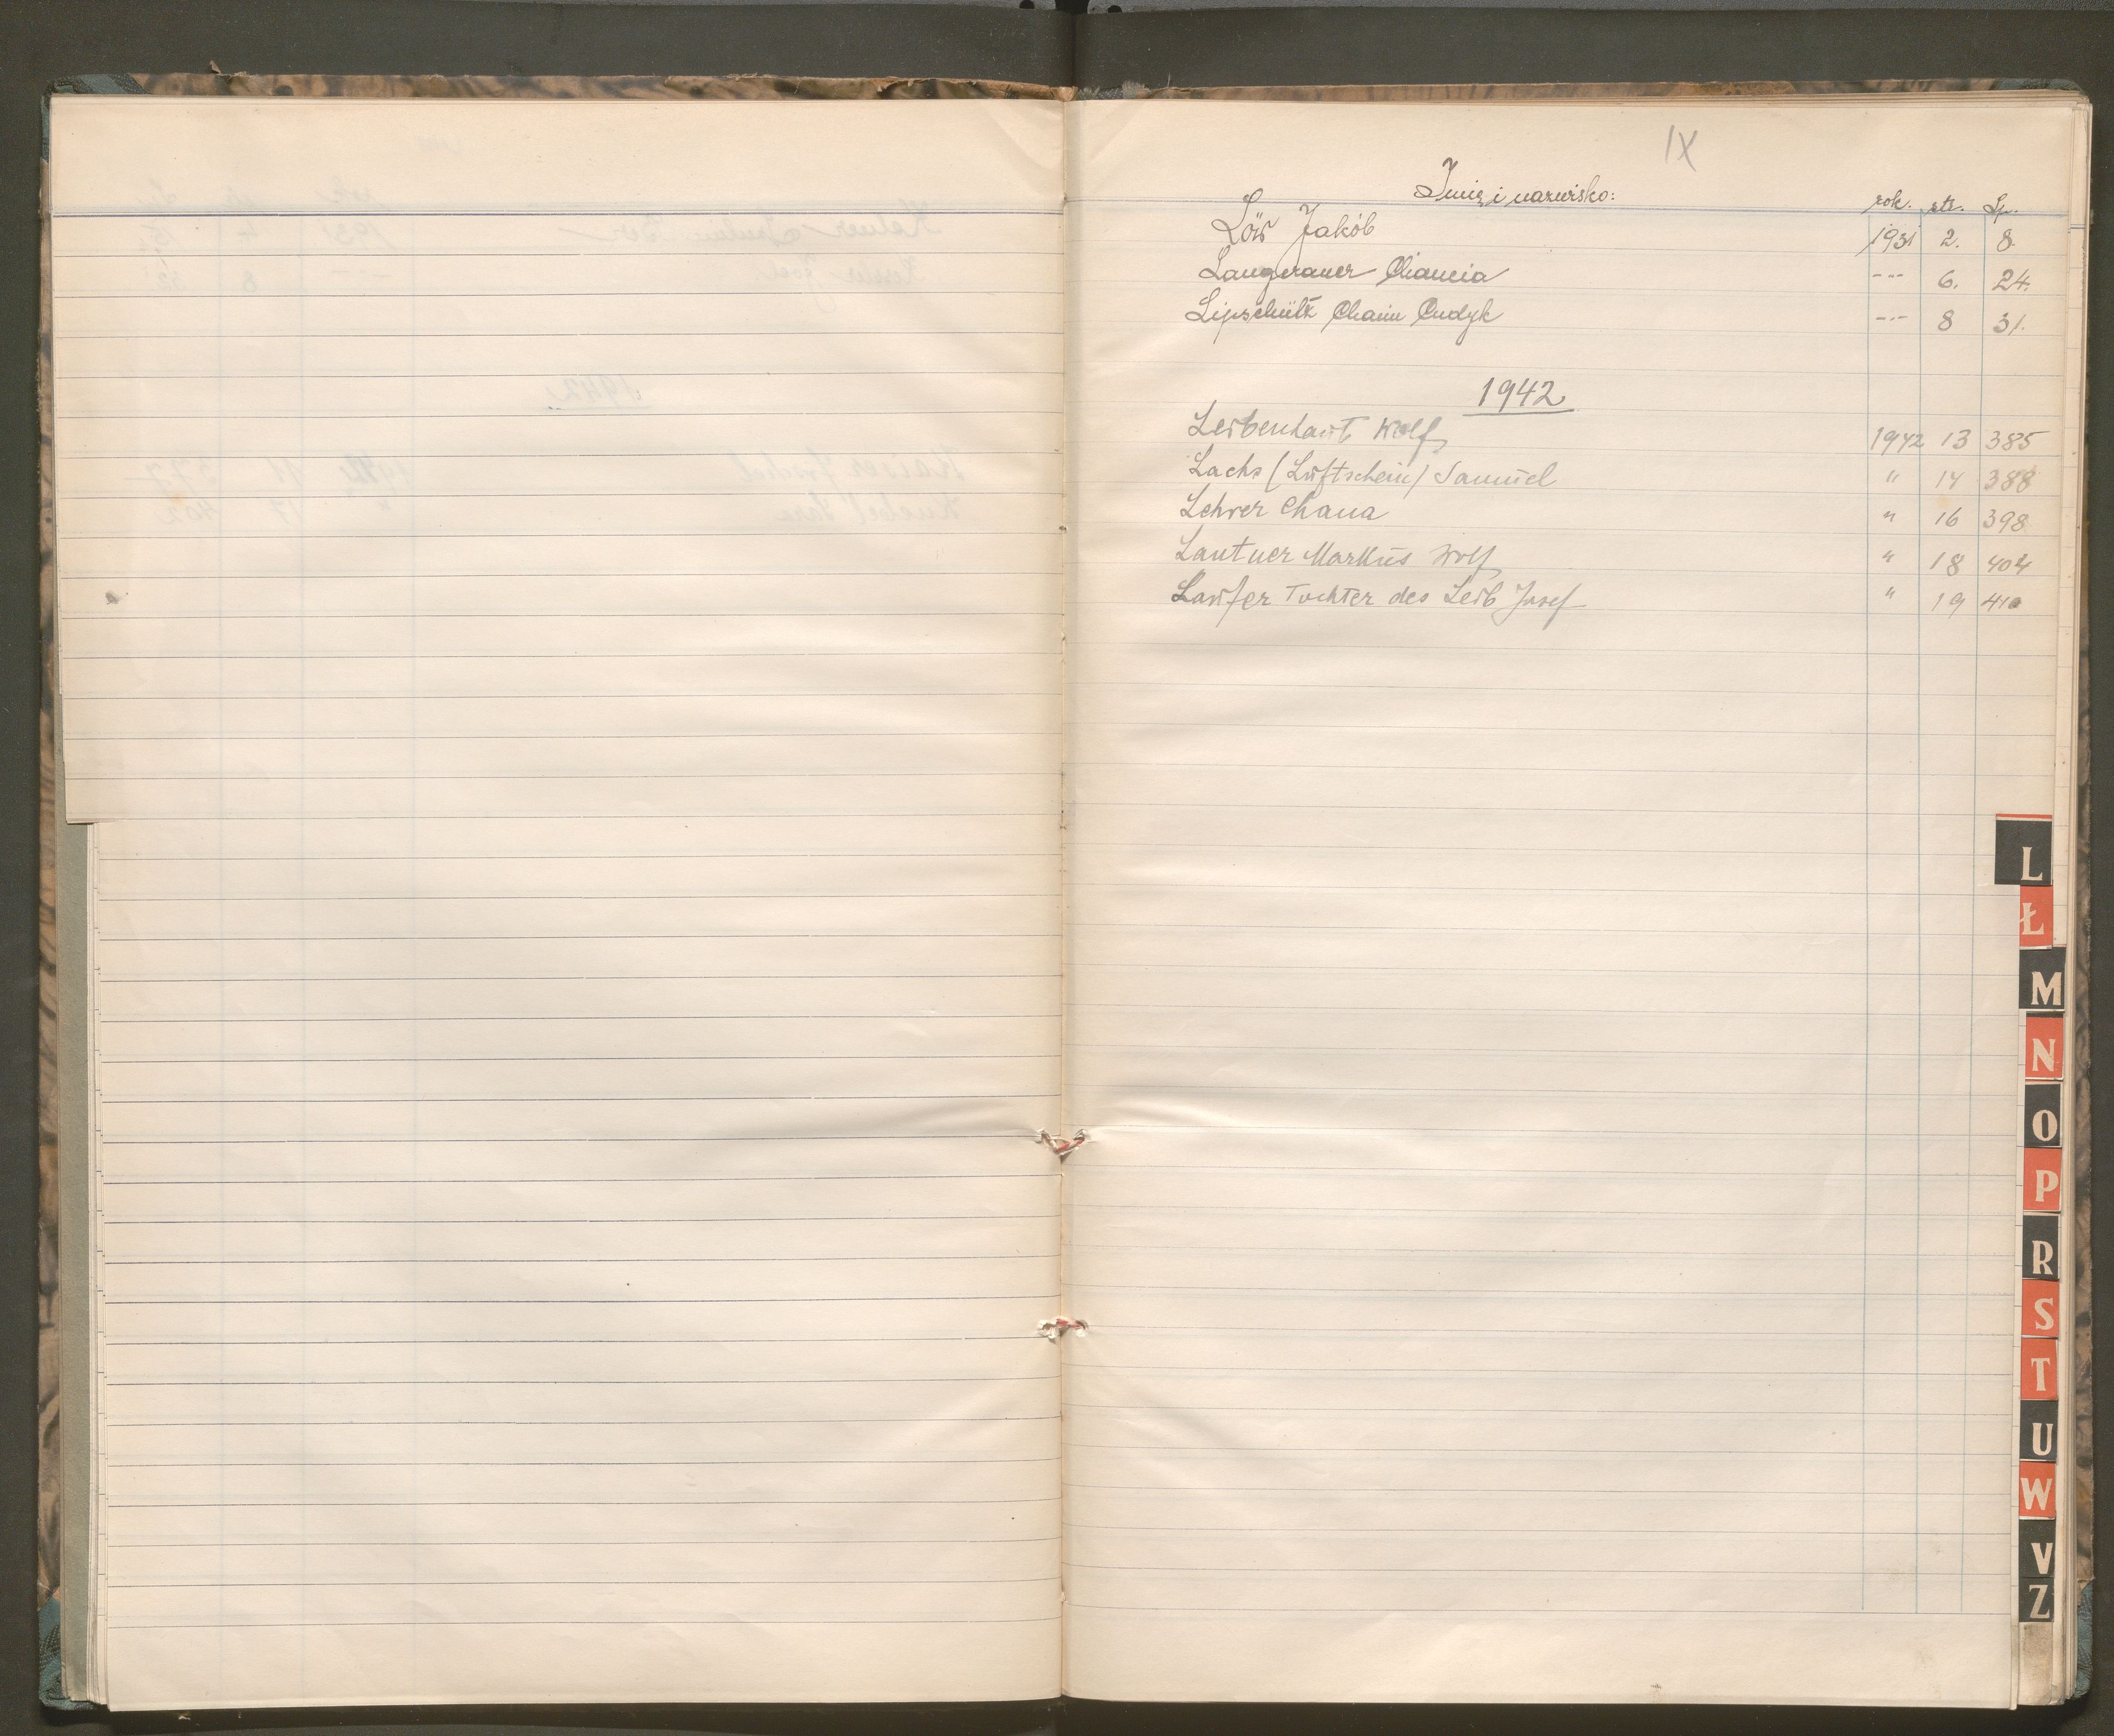 IX
Imię i nazwisko: rok. str. Lp.
Löw Jakób 1931 2. 8.
Langerauer Chancia -"- 6. 24.
Lipschütz Chaim Cudyk -"- 8 31.
1942
Leibenhaut Wolf 1942 13 385
Lachs (Luftschein) Samuel " 14 388
Lehrer Chana " 16 398
Lautner Markus Wolf " 18 404
Laufer Tochter des Leib Josef " 19 410
L
Ł
M
N
O
P
R
S
T
U
W
V
Z